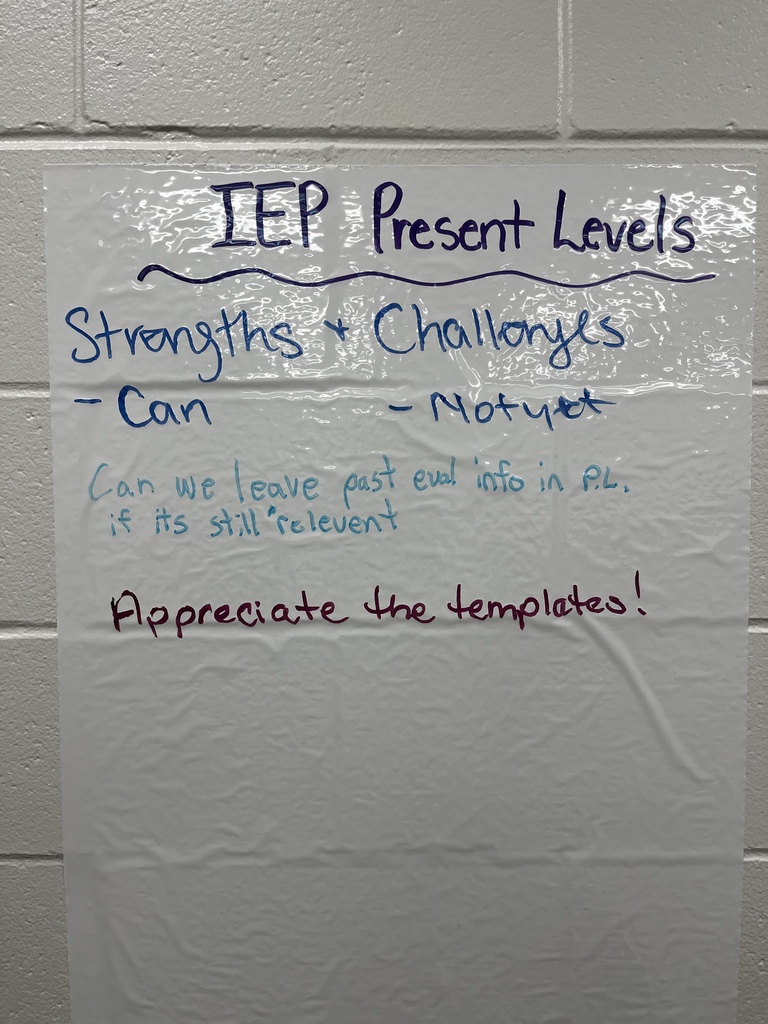 IEP Present Levels
Strengths + Challenges
- Can - Not yet
Can we leave past eval info in P.L.
if its still relevent
Appreciate the templates!